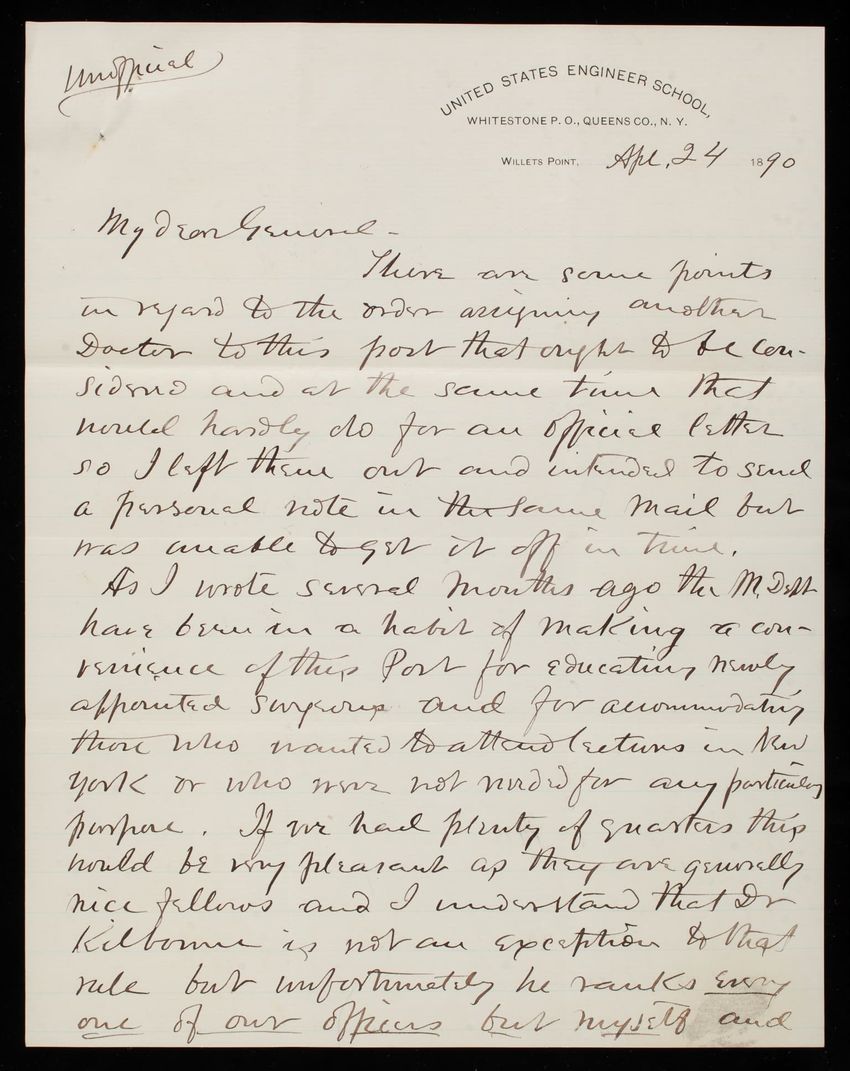 Unofficial
UNITED STATES ENGINEER SCHOOL,
WHITESTONE P. O., QUEENS CO., N. Y.
WILLETS POINT, Apl. 24 1890
My dear General -
There are some points
in regard to the order assigning another
Doctor to this post that ought to be con-
sidered and at the same time that
would hardly do for an official letter
so I left them out and intended to send
a personal note in the same mail but
was unable to get it off in time.
As I wrote several months ago the M. Dept
have been in a habit of making a con-
venience of this Post for educating newly
appointed surgeons and for accommodating
those who wanted to attend lectures in New
York or who were not needed for any particular
purpose. If we had plenty of quarters this
would be very pleasant as they are generally
nice fellows and I understand that Dr
Kilbourne is not an exception to that
rule but unfortunately he ranks every
one of our officers but myself and